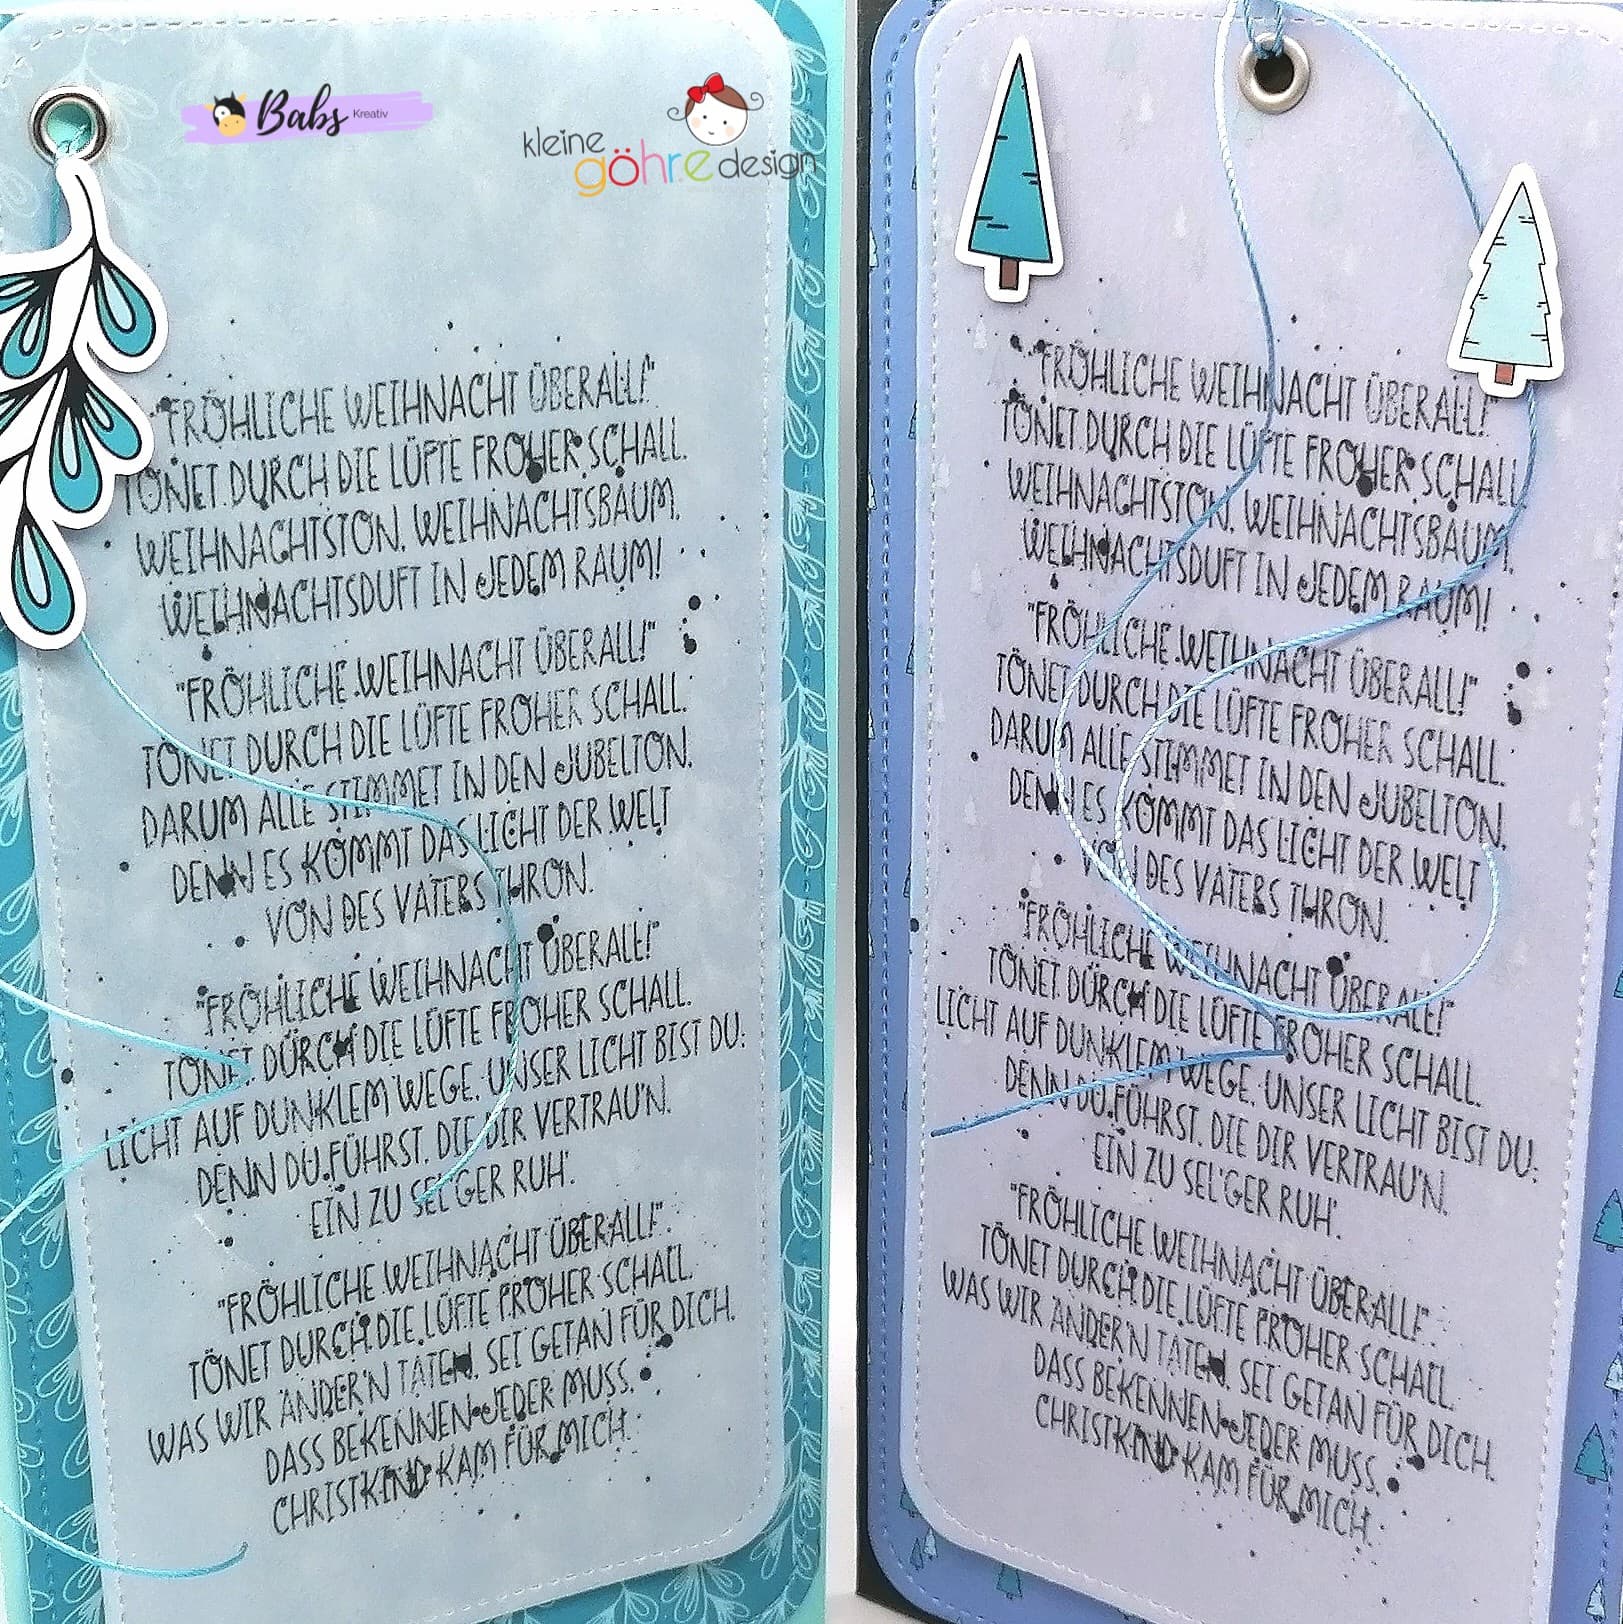 Babs Kreativ
kleine
göhre design
"FRÖHLICHE WEIHNACHT ÜBERALL!"
TÖNET DURCH DIE LÜFTE FROHER SCHALL.
WEIHNACHTSTON, WEIHNACHTSBAUM,
WEIHNACHTSDUFT IN JEDEM RAUM!
"FRÖHLICHE WEIHNACHT ÜBERALL!"
TÖNET DURCH DIE LÜFTE FROHER SCHALL.
DARUM ALLE STIMMET IN DEN JUBELTON,
DENN ES KOMMT DAS LICHT DER WELT
VON DES VATERS THRON.
"FRÖHLICHE WEIHNACHT ÜBERALL!"
TÖNET DURCH DIE LÜFTE FROHER SCHALL.
LICHT AUF DUNKLEM WEGE, UNSER LICHT BIST DU;
DENN DU FÜHRST, DIE DIR VERTRAU'N,
EIN ZU SEL'GER RUH'.
"FRÖHLICHE WEIHNACHT ÜBERALL!"
TÖNET DURCH DIE LÜFTE FROHER SCHALL.
WAS WIR ANDER'N TATEN, SEI GETAN FÜR DICH,
DASS BEKENNEN JEDER MUSS,
CHRISTKIND KAM FÜR MICH.
"FRÖHLICHE WEIHNACHT ÜBERALL!"
TÖNET DURCH DIE LÜFTE FROHER SCHALL.
WEIHNACHTSTON, WEIHNACHTSBAUM,
WEIHNACHTSDUFT IN JEDEM RAUM!
"FRÖHLICHE WEIHNACHT ÜBERALL!"
TÖNET DURCH DIE LÜFTE FROHER SCHALL.
DARUM ALLE STIMMET IN DEN JUBELTON,
DENN ES KOMMT DAS LICHT DER WELT
VON DES VATERS THRON.
"FRÖHLICHE WEIHNACHT ÜBERALL!"
TÖNET DURCH DIE LÜFTE FROHER SCHALL.
LICHT AUF DUNKLEM WEGE, UNSER LICHT BIST DU;
DENN DU FÜHRST, DIE DIR VERTRAU'N,
EIN ZU SEL'GER RUH'.
"FRÖHLICHE WEIHNACHT ÜBERALL!"
TÖNET DURCH DIE LÜFTE FROHER SCHALL.
WAS WIR ANDER'N TATEN, SEI GETAN FÜR DICH,
DASS BEKENNEN JEDER MUSS,
CHRISTKIND KAM FÜR MICH.